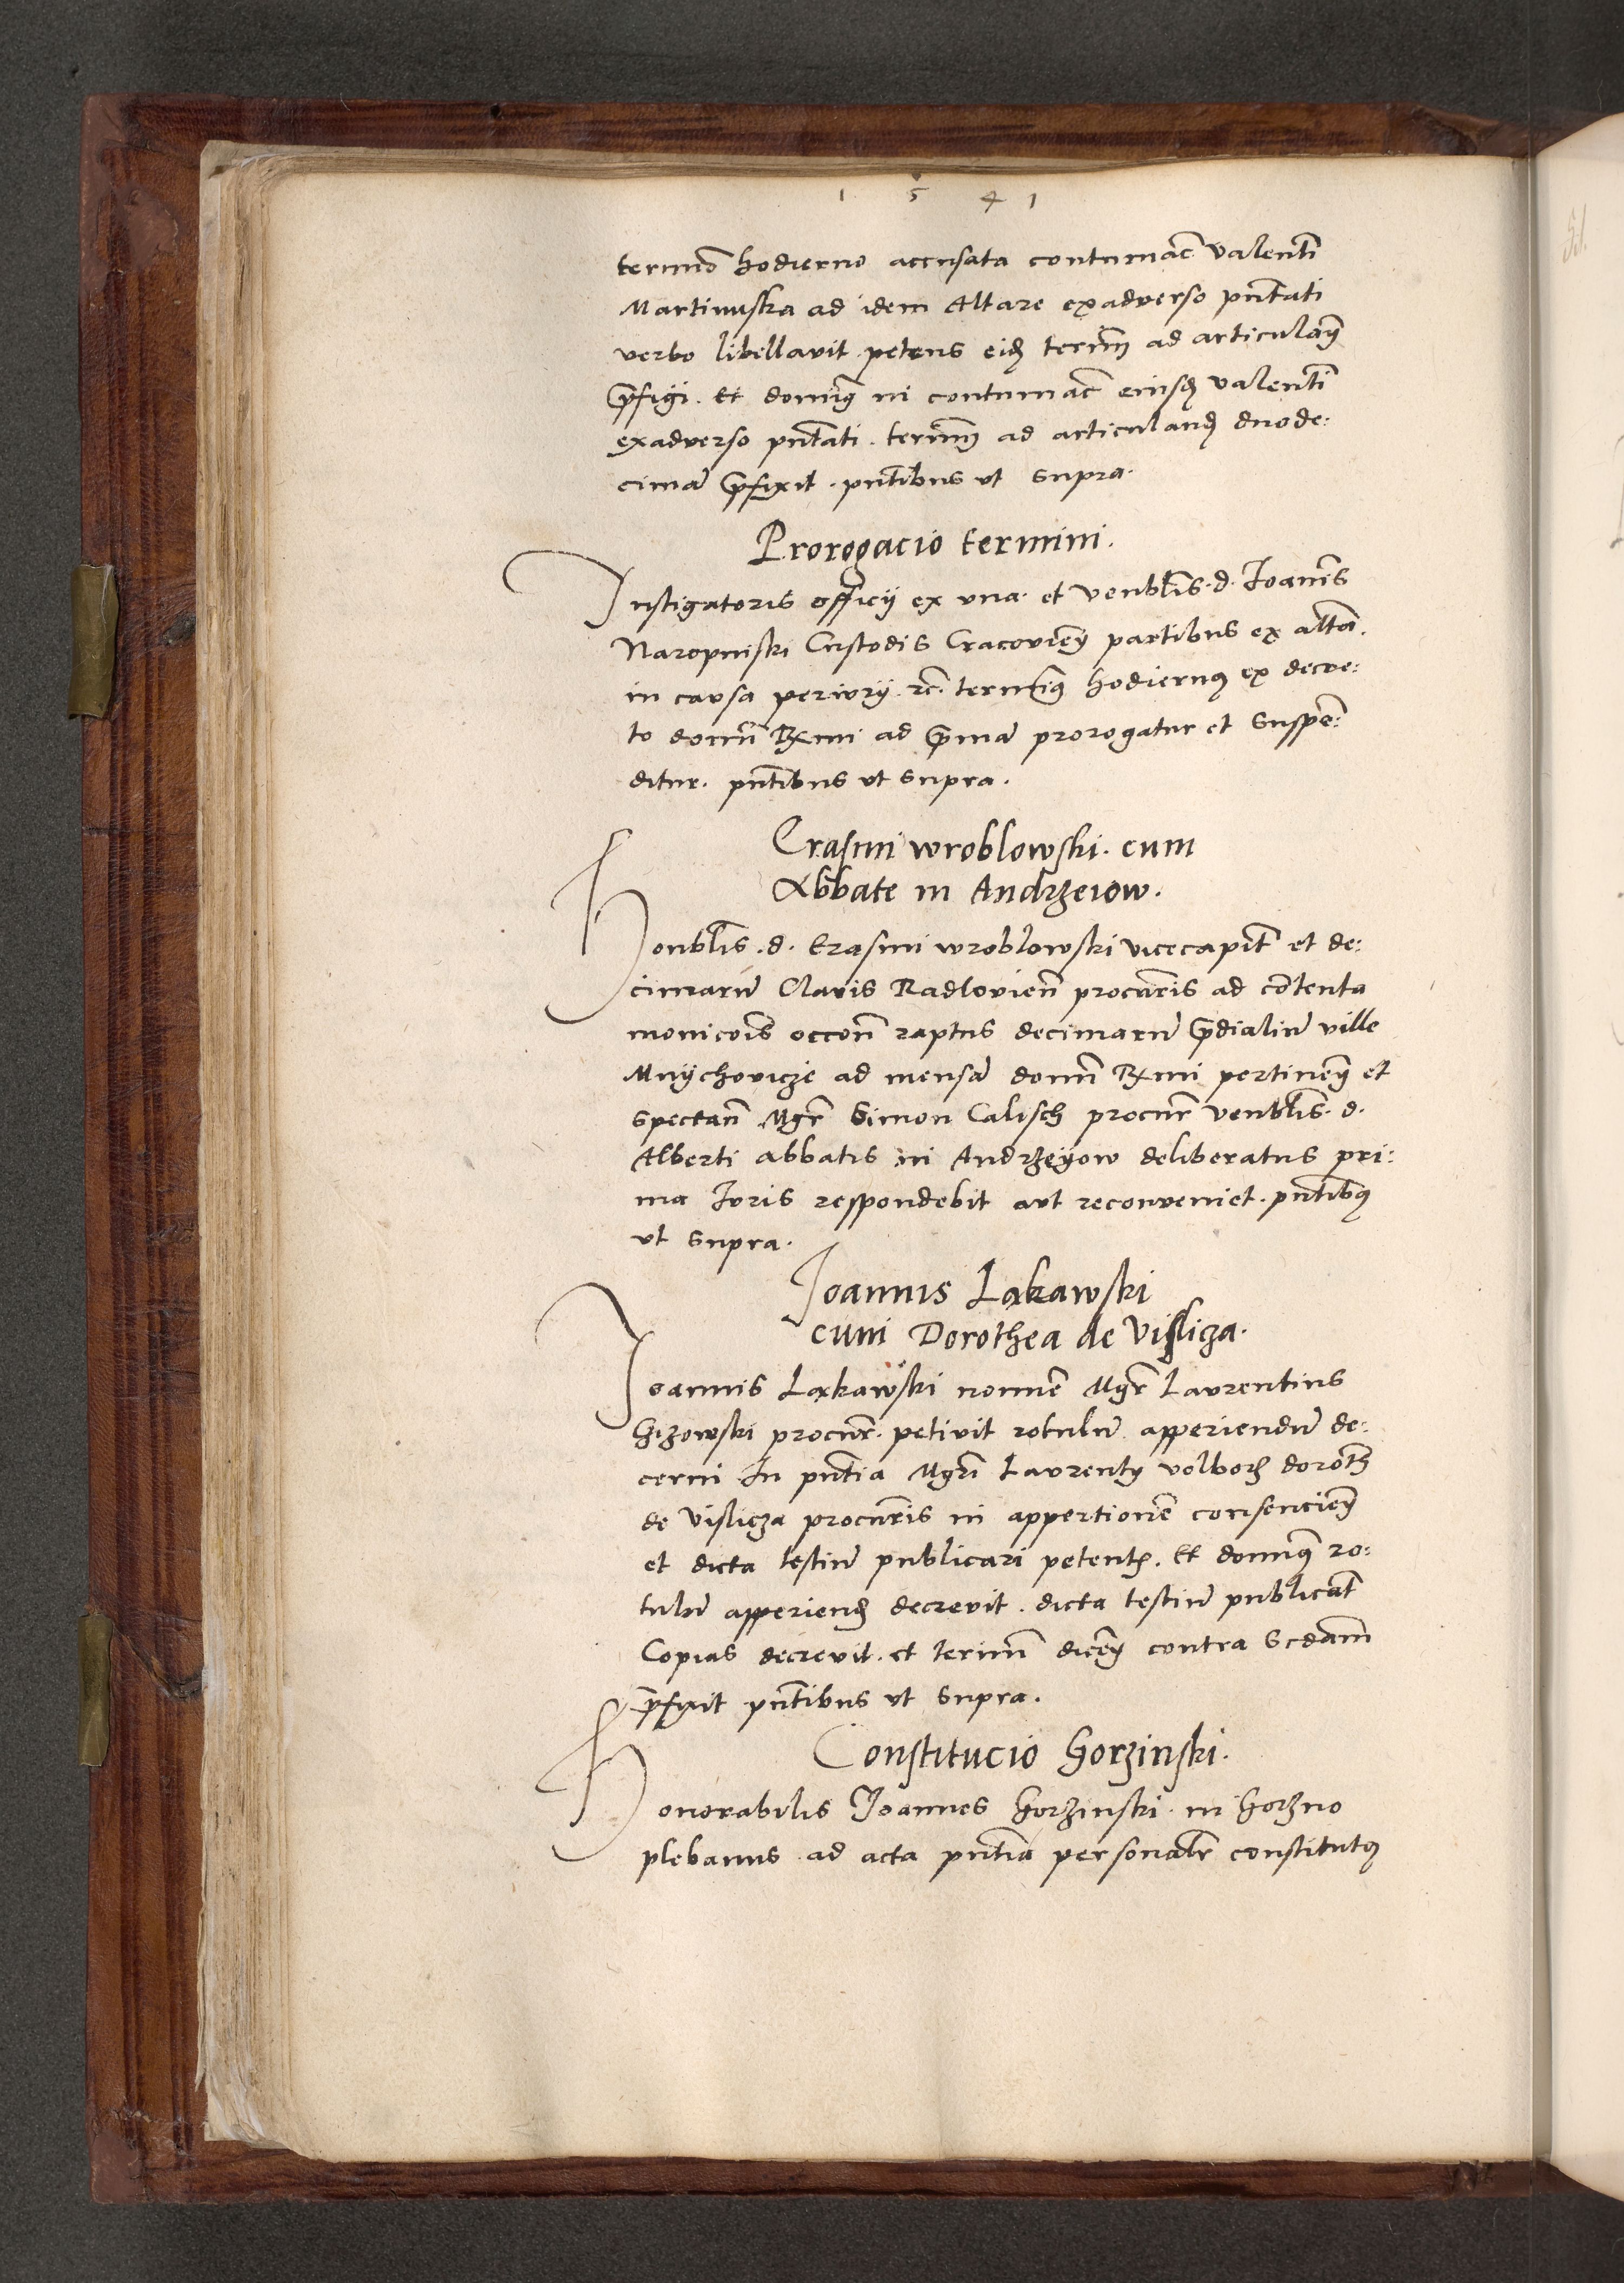 1 5 4 1
termīo hodierno accusata contumac̄ valentī
Martinuska ad idem Altare exadverso pn̄tati
verbo libellavit petens eidē termīn ad articulan̄
p̄figi. Et domin9 in contumac̄ eiusdē valentī
exadverso pn̄tati. termīn ad articulandū duode:
cimā p̄fixit. pn̄tibus ut supra.
Prorogacio termini.
Instigatoris officij ex una. et venblīs. d. Joanīs
Naropinski Custodis Cracovien̄ partibus ex altā.
in causa periurij. rc̄. termin9 hodiern9 ex decre:
to domī Rx̄mi ad p̄mā prorogatur et suspē:
ditur. pn̄tibus ut supra.
Erasmi wroblowski. cum
Abbate in Andrzeiow.
Honblīs. d. Erasmi wroblowski vicecapit̄ et de:
cimarū Clavis Radlovien̄ procur̄is ad cōtenta
monicōis occon̄ raptus decimarū p̄dialiū ville
Mnijchovicze ad mensā domī Rx̄mi pertinen̄ et
spectan̄ Mgr̄ Simon Calisch procur̄ venblīs. d.
Alberti abbatis in Andrzeyow deliberatus pri:
ma Juris respondebit aut reconveniet. pn̄tib9
ut supra.
Joannis Lakawski
cum Dorothea de Vislicza.
Joannis Lakawski nomīe Mgr̄ Laurentius
Gizowski procur̄. petivit rotulū apperiendū de:
cerni In pn̄tia Mgrī Laurentij volborz dorotḣ
de Vislicza procur̄is in appertionē consencien̄
et dicta testiū publicari petentꝭ. Et domin9 ro:
tulū apperiendū decrevit. dicta testiū publicat̄
Copias decrevit. et termīn dicen̄ contra scdam̄
p̄fixit pn̄tibus ut supra.
Constitucio Gorzinski.
Honorabilis Joannes Gorzinski. in Gorzno
plebanus ad acta pn̄tia personalr̄ constitut9